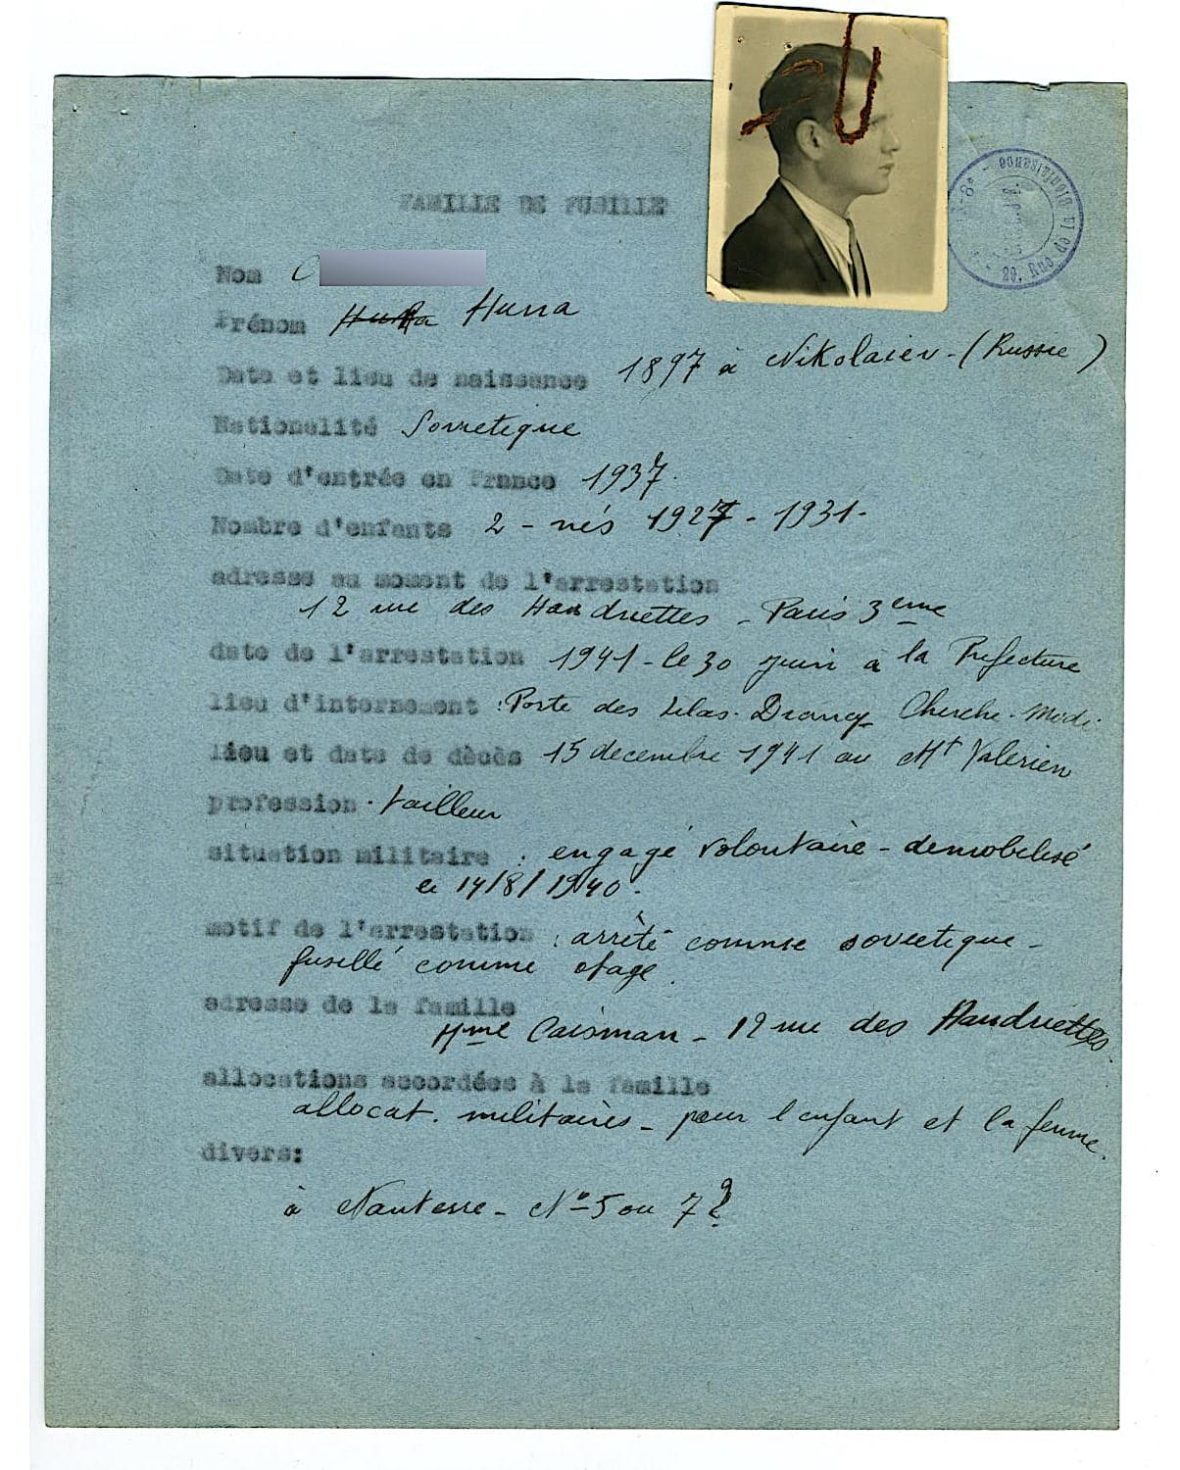 FAMILLE DE FUSILLE
Nom C
Prénom Hussa
Date et lieu de naissance 1897 à Nikolaiev - (Russie)
Nationalité Sovietique
Date d'entrée en France 1937.
Nombre d'enfants 2 - nés 1927 - 1931 -
adresse au moment de l'arrestation
12 rue des Haudriettes - Paris 3eme
date de l'arrestation 1941 - le 30 juin à la Prefecture
lieu d'internement : Porte des Lilas. Drancy Cherche. Midi.
lieu et date de dècès 15 decembre 1941 au Mt Valerien
profession . tailleur
situation militaire : engagé volontaire - demobilisé
le 14/8/1940.
motif de l'arrestation : arrêté comme sovietique -
fusillé comme otage.
adresse de la famille
Mme Caisman - 12 rue des Haudriettes.
allocations accordées à la famille
allocat. militaires - pour l'enfant et la femme.
divers:
à Nanterre - No 5 ou 7?
8e - 29, Rue de la Bienfaisance